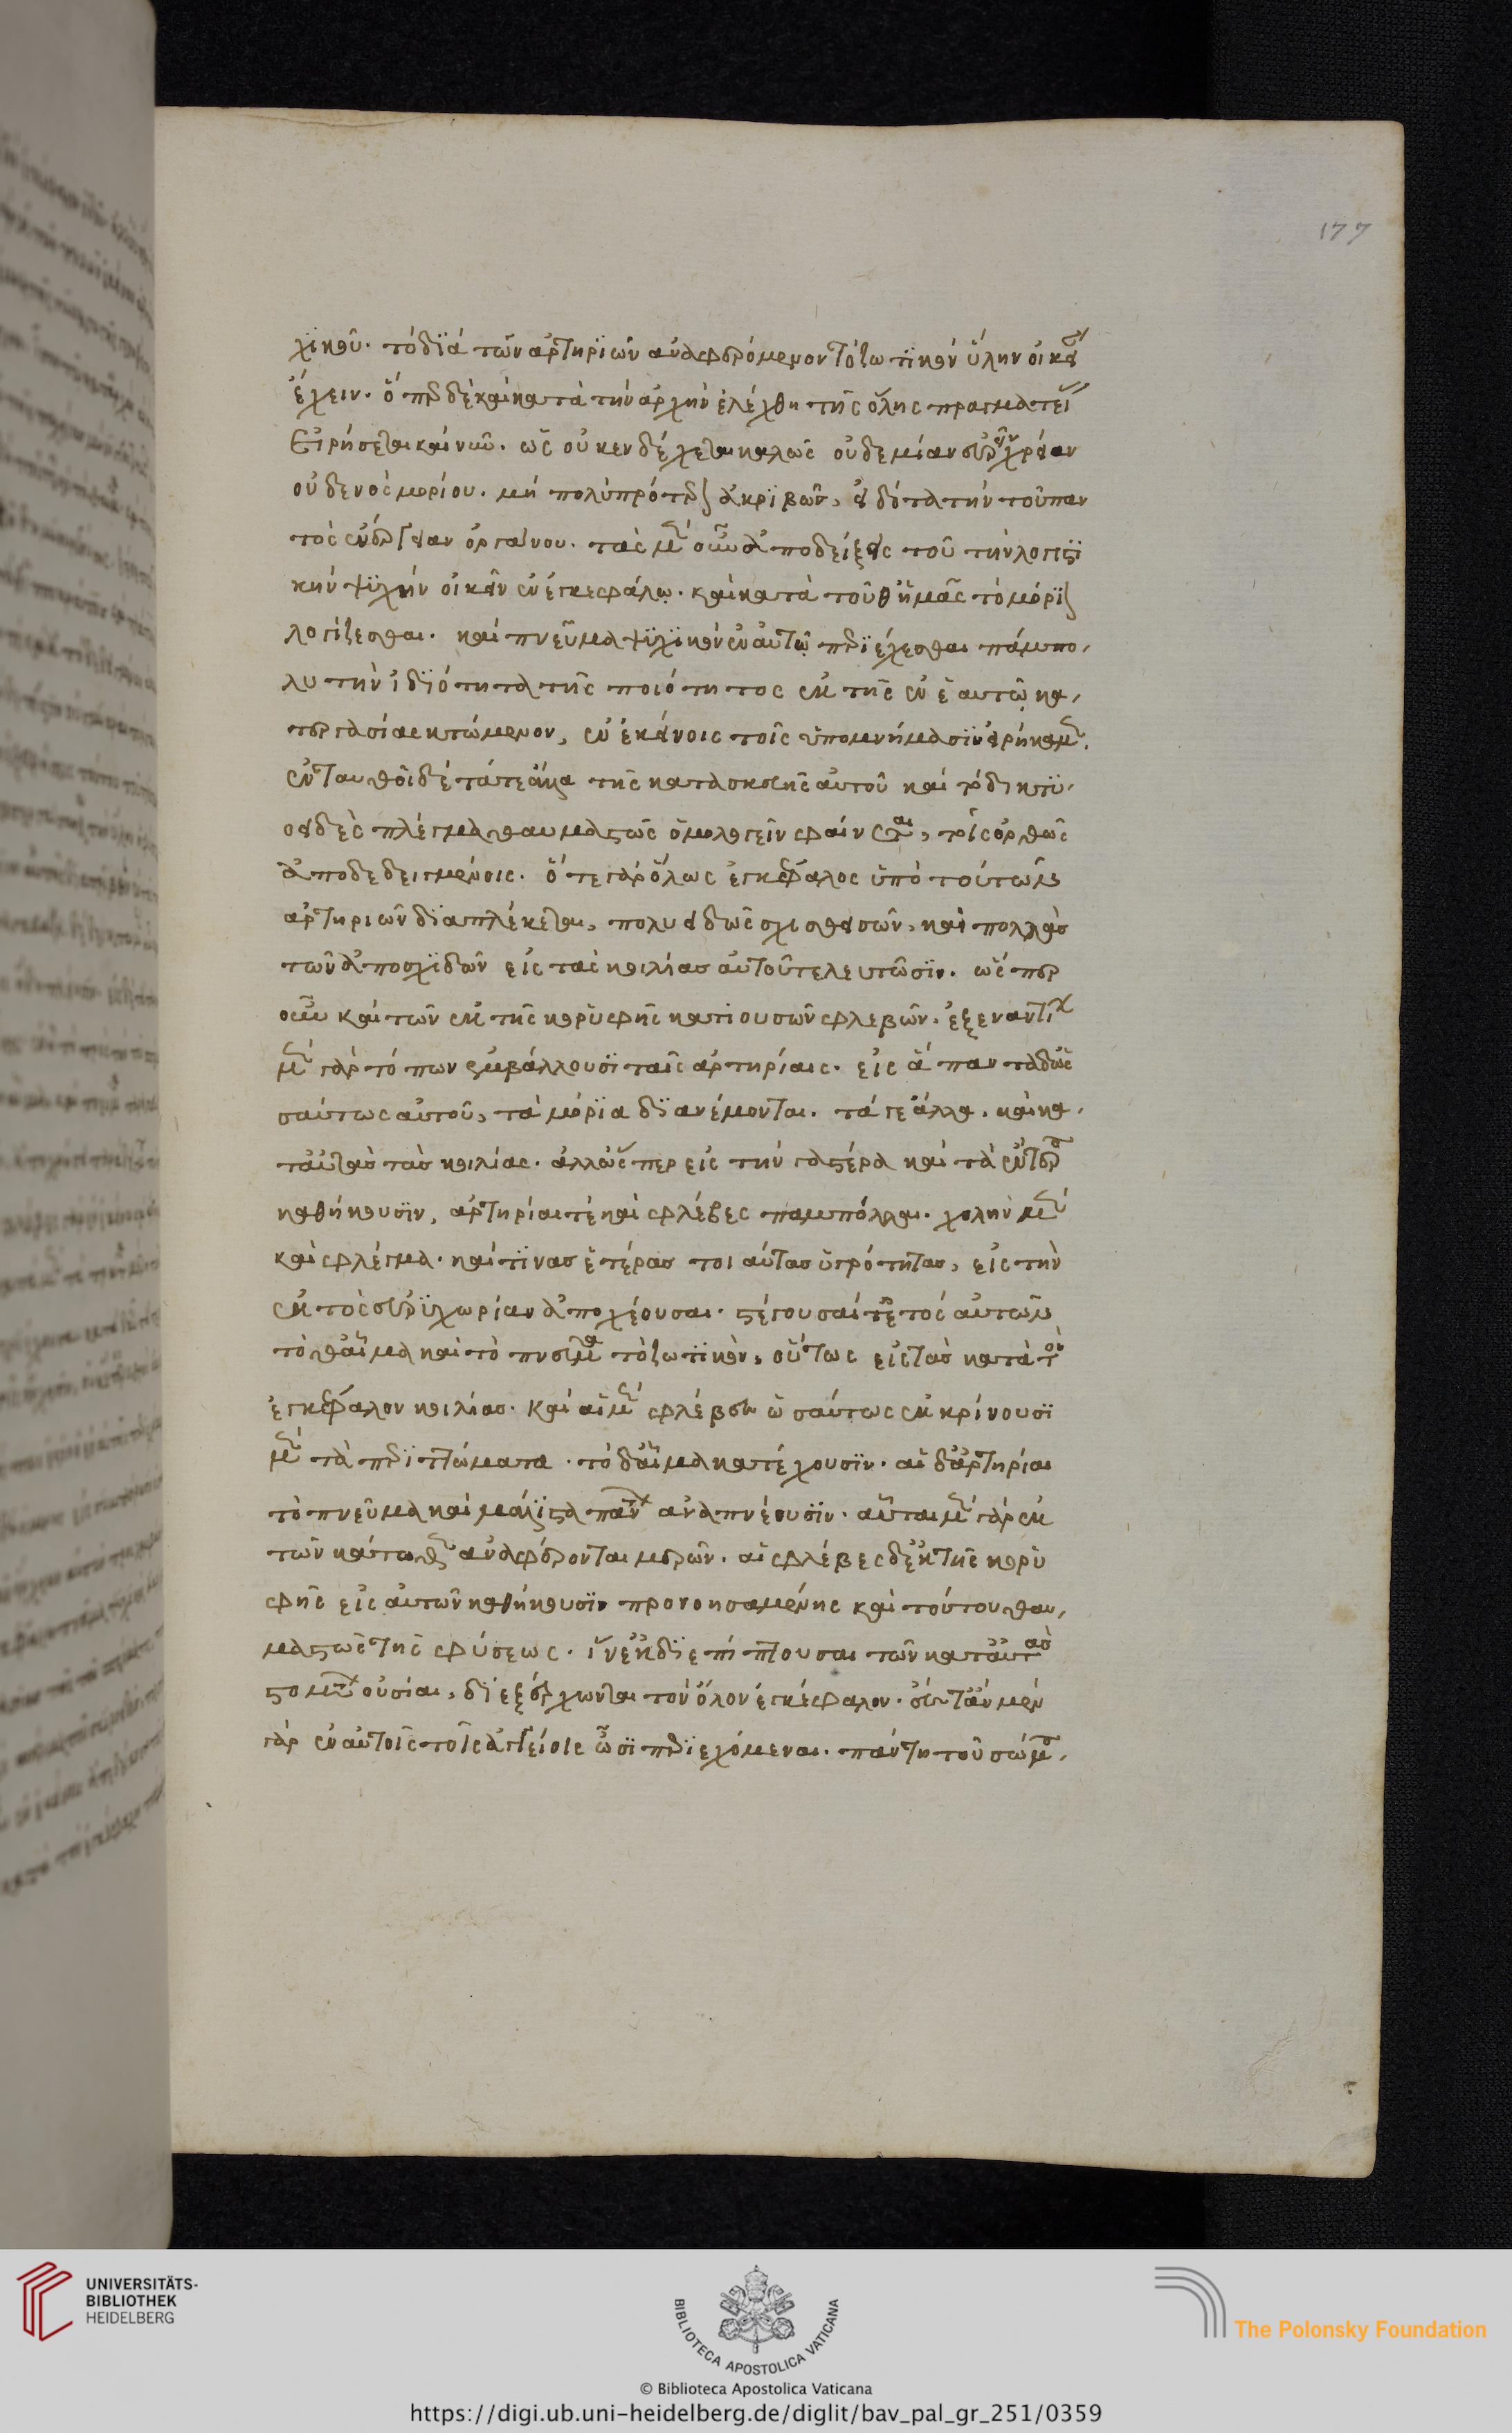 177
χικοῦ. τὸ διὰ τῶν ἀρτηριῶν ἀναφερόμενον τὸ ζωτικὸν ὕλην οἰκεί
ἔχειν. ὅπερ δὲ καὶ κατὰ τὴν ἀρχὴν ἐλέχθη τῆς ὅλης πραγματεί
Εἰρήσεται καὶ νῦν. ὡς οὐκ ἐνδέχεται καλῶς οὐδεμίαν εὑρεῖν χρείαν
οὐδενὸς μορίου. μὴ πολὺ πρότερον ἀκριβῶν, εἰδότα τὴν τοῦ παν
τὸς ἐνέργειαν ὀργάνου. τὰς μὲν οὖν ἀποδείξεις τοῦ τὴν λογιστι
κὴν ψυχὴν οἰκεῖν ἐν ἐγκεφάλῳ. καὶ κατὰ τοῦθ' ἡμᾶς τὸ μόριον
λογίζεσθαι. καὶ πνεῦμα ψυχικὸν ἐν αὐτῷ περιέχεσθαι πάμπο,
λυ τὴν ἰδιότητα τῆς ποιότητος ἐκ τῆς ἐν ἑαυτῷ κα,
τεργασίας κτώμενον, ἐν ἐκείνοις τοῖς ὑπομνήμασιν εἰρήκαμεν.
ἐνταυθοῖ δὲ τά τε ἄλλα τῆς κατασκευῆς αὐτοῦ καὶ τὸ δικτυ,
οειδὲς πλέγμα θαυμαστῶς ὁμολογεῖν φαίνεται, τοῖς ὀρθῶς
ἀποδεδειγμένοις. ὅ τε γὰρ ὅλως ἐγκέφαλος ὑπὸ τούτων
ἀρτηριῶν διαπλέκεται, πολυειδῶς σχισθεισῶν, καὶ πολλαὶ
τῶν ἀποσχίδων εἰς τὰς κοιλίας αὐτοῦ τελευτῶσιν. ὥσπερ
οὖν καὶ τῶν ἐκ τῆς κορυφῆς κατιουσῶν φλεβῶν. ἐξ ἐναντίων
μὲν γὰρ τόπων ἐμβάλλουσι ταῖς ἀρτηρίαις. εἰς ἅπαντα δὲ ὡς
σαύτως αὐτοῦ, τὰ μόρια διανέμονται. τά τε ἄλλα. καὶ κα,
τ' αὐτὰς τὰς κοιλίας. ἀλλ' ὥσπερ εἰς τὴν γαστέρα καὶ τὰ ἔντερα
καθήκουσιν, ἀρτηρίαι τὲ καὶ φλέβες παμπόλλαι. χολὴν μὲν
καὶ φλέγμα. καί τινας ἑτέρας τοιαύτας ὑγρότητας, εἰς τὴν
ἐκτὸς εὐρυχωρίαν ἀποχέουσαι. στέγουσαί τε ἐντὸς αὐτῶν
τό θ' αἷμα καὶ τὸ πνεῦμα τὸ ζωτικὸν, οὕτως εἰς τὰς κατὰ τὸν
ἐγκέφαλον κοιλίας. καὶ αἱ μὲν φλέβες ὡσαύτως ἐκκρίνουσι
μὲν τὰ περιττώματα. τὸ δ' αἷμα κατέχουσιν. αἱ δ' ἀρτηρίαι
τὸ πνεῦμα καὶ μάλιστα πάντων ἀναπνέουσιν. αὗται μὲν γὰρ ἐκ
τῶν κάτωθεν ἀναφέρονται μερῶν. αἱ φλέβες δ' ἐκ τῆς κορυ
φῆς εἰς αὐτῶν καθήκουσιν προνοησαμένης καὶ τούτου θαυ,
μαστῶς τῆς φύσεως. ἵν' ἐκδιεπίπτουσαι τῶν κατ' αὐτὰς
στομάτων οὐσίαι, διεξέρχωνται τὸν ὅλον ἐγκέφαλον. ἔστ' ἂν μὲν
γὰρ ἐν αὐτοῖς τοῖς ἀγγείοις ὦσι περιεχόμεναι. πάντη τοῦ σώμα,
UNIVERSITÄTS-
BIBLIOTHEK
HEIDELBERG
BIBLIOTECA APOSTOLICA VATICANA
The Polonsky Foundation
© Biblioteca Apostolica Vaticana
https://digi.ub.uni-heidelberg.de/diglit/bav_pal_gr_251/0359